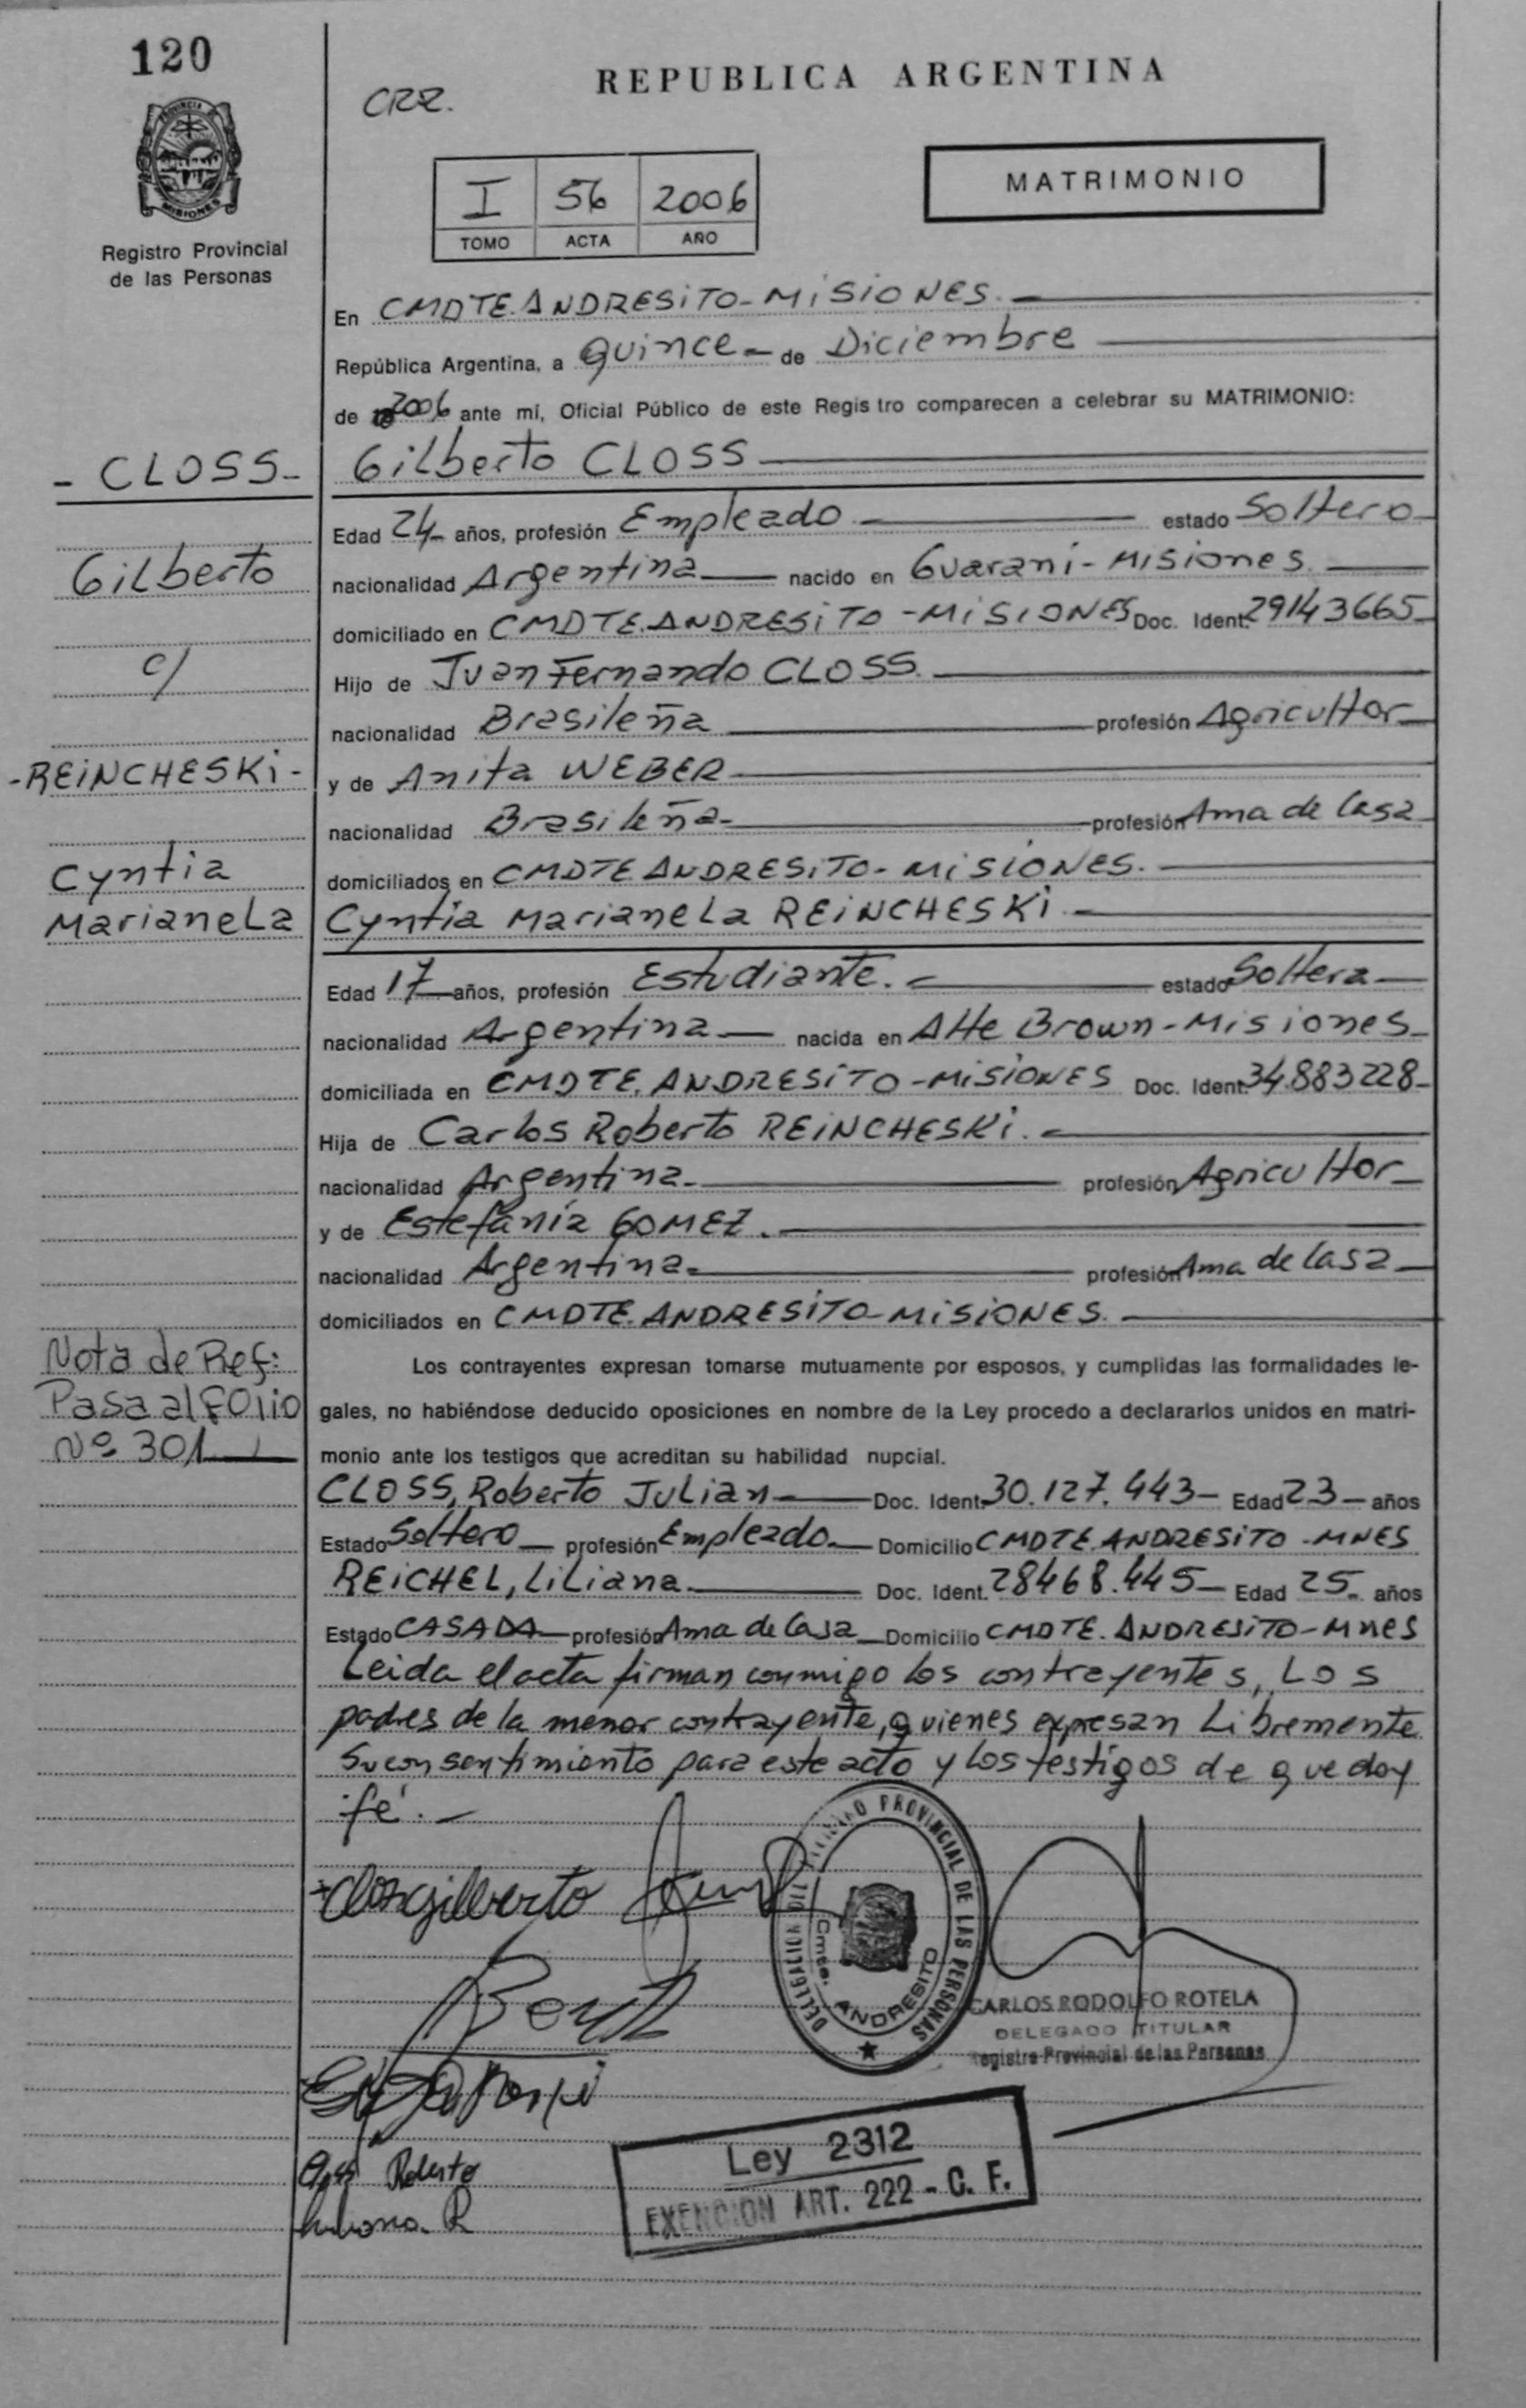 120
REPUBLICA ARGENTINA
CRZ.
PROVINCIA
MISIONES
Registro Provincial
de las Personas
I 56 2006
TOMO ACTA AÑO
MATRIMONIO
En CMDTE. ANDRESiTO-MiSiONES.
República Argentina, a quince de Diciembre
de 2006 ante mí, Oficial Público de este Regis tro comparecen a celebrar su MATRIMONIO:
- CLOSS- Gilberto CLOSS
Edad 24 años, profesión Empleado estado Soltero
Gilberto nacionalidad Argentina nacido en Guaraní-Misiones.
domiciliado en CMDTE. ANDRESiTO-MiSiONES Doc. Ident. 29143665
c/ Hijo de Juan Fernando CLOSS.
nacionalidad Brasileña profesión Agricultor
-REiNCHESKi- y de Anita WEBER
nacionalidad Brasileña profesión Ama de Casa
Cyntia domiciliados en CMDTE ANDRESiTO-MiSiONES.
Marianela Cyntia Marianela REiNCHESKi
Edad 17 años, profesión Estudiante. estado Soltera
nacionalidad Argentina nacida en Alte Brown-Misiones
domiciliada en CMDTE. ANDRESiTO-MiSiONES Doc. Ident. 34.883228
Hija de Carlos Roberto REiNCHESKi.
nacionalidad Argentina profesión Agricultor
y de Estefanía GOMEZ.
nacionalidad Argentina profesión Ama de Casa
domiciliados en CMDTE. ANDRESiTO-MiSiONES.
Nota de Ref: Los contrayentes expresan tomarse mutuamente por esposos, y cumplidas las formalidades le-
Pasa al Folio gales, no habiéndose deducido oposiciones en nombre de la Ley procedo a declararlos unidos en matri-
Nº 301 monio ante los testigos que acreditan su habilidad nupcial.
CLOSS, Roberto Julian Doc. Ident. 30.127.443 Edad 23 años
Estado Soltero profesión Empleado Domicilio CMDTE. ANDRESiTO-MNES
REiCHEL, Liliana Doc. Ident. 28468.445 Edad 25 años
Estado CASADA profesión Ama de Casa Domicilio CMDTE. ANDRESiTO-Mnes
Leida el acta firman conmigo los contrayentes, Los
padres de la menor contrayente, quienes expresan Libremente
su consentimiento para este acto y Los testigos de que doy
fé.
Closs gilberto
DELEGACION DEL REGISTRO PROVINCIAL DE LAS PERSONAS
Cmte. ANDRESITO
CARLOS RODOLFO ROTELA
DELEGADO TITULAR
Registro Provincial de las Personas
Closs Roberto
Liliana R
Ley 2312
EXENCION ART. 222 - C. F.